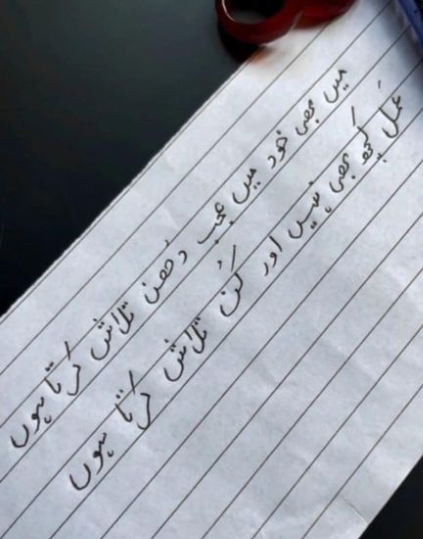 میں بھی خود میں عجب دُھن تلاش کرتا ہوں
عمل کچھ بھی نہیں اور کُن تلاش کرتا ہوں